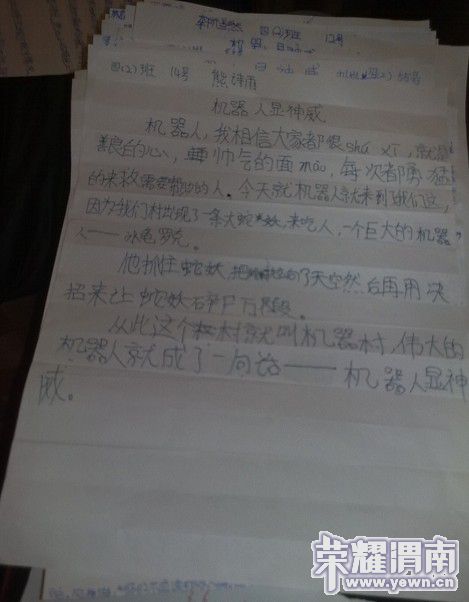 四(2)班 12号
四(2)班 14号 熊
机器人显神威
机器人,我相信大家都很shú xī,就是
善良的心,帅气的面mào,每次都勇猛
的来救需要帮助的人。今天就机器人就来到了我们这,
因为我们村出现了一条大蛇妖,来吃人,一个巨大的机器
人——冰龟罗克。
他抓住蛇妖,把 了天空然后再用决
招来让蛇妖碎尸万段。
从此这个村就叫机器村,伟大的
机器人就成了一句话——机器人显神
威。
荣耀渭南
www.yewn.cn